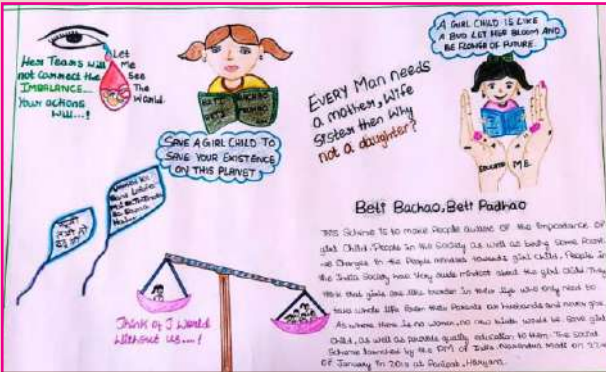 Her Tears will
not correct the
IMBALANCE...
Your actions
will...!
Let
Me
See
The
World
BETI BACHAO
BETI PADHAO
SAVE A GIRL CHILD TO
SAVE YOUR EXISTENCE
ON THIS PLANET
EVERY Man needs
a mother, Wife
Sister then Why
not a daughter?
A GIRL CHILD IS LIKE
A BUD LET HER BLOOM AND
BE FLOWER OF FUTURE.
EDUCATE ME.
Think of J World
Without us...!
Beti Bachao, Beti Padhao
This Scheme is to make People aware of the Importance of
girl Child, People in the Society as well as being some Posit-
ve Changes in the People mindset towards girl child, People in
the India Society have Very rude mindset about the girl child They
think that girls are like burden in their life who only need to
take whole life from their Parents or husbands and never give
As where there is no women, no new birth would be. Save girl
Child, as well as provide quality education to them. The Social
Scheme launched by the PM of India, Narendra Modi on 22nd
OF January in 2015 at Panipat, Haryana.